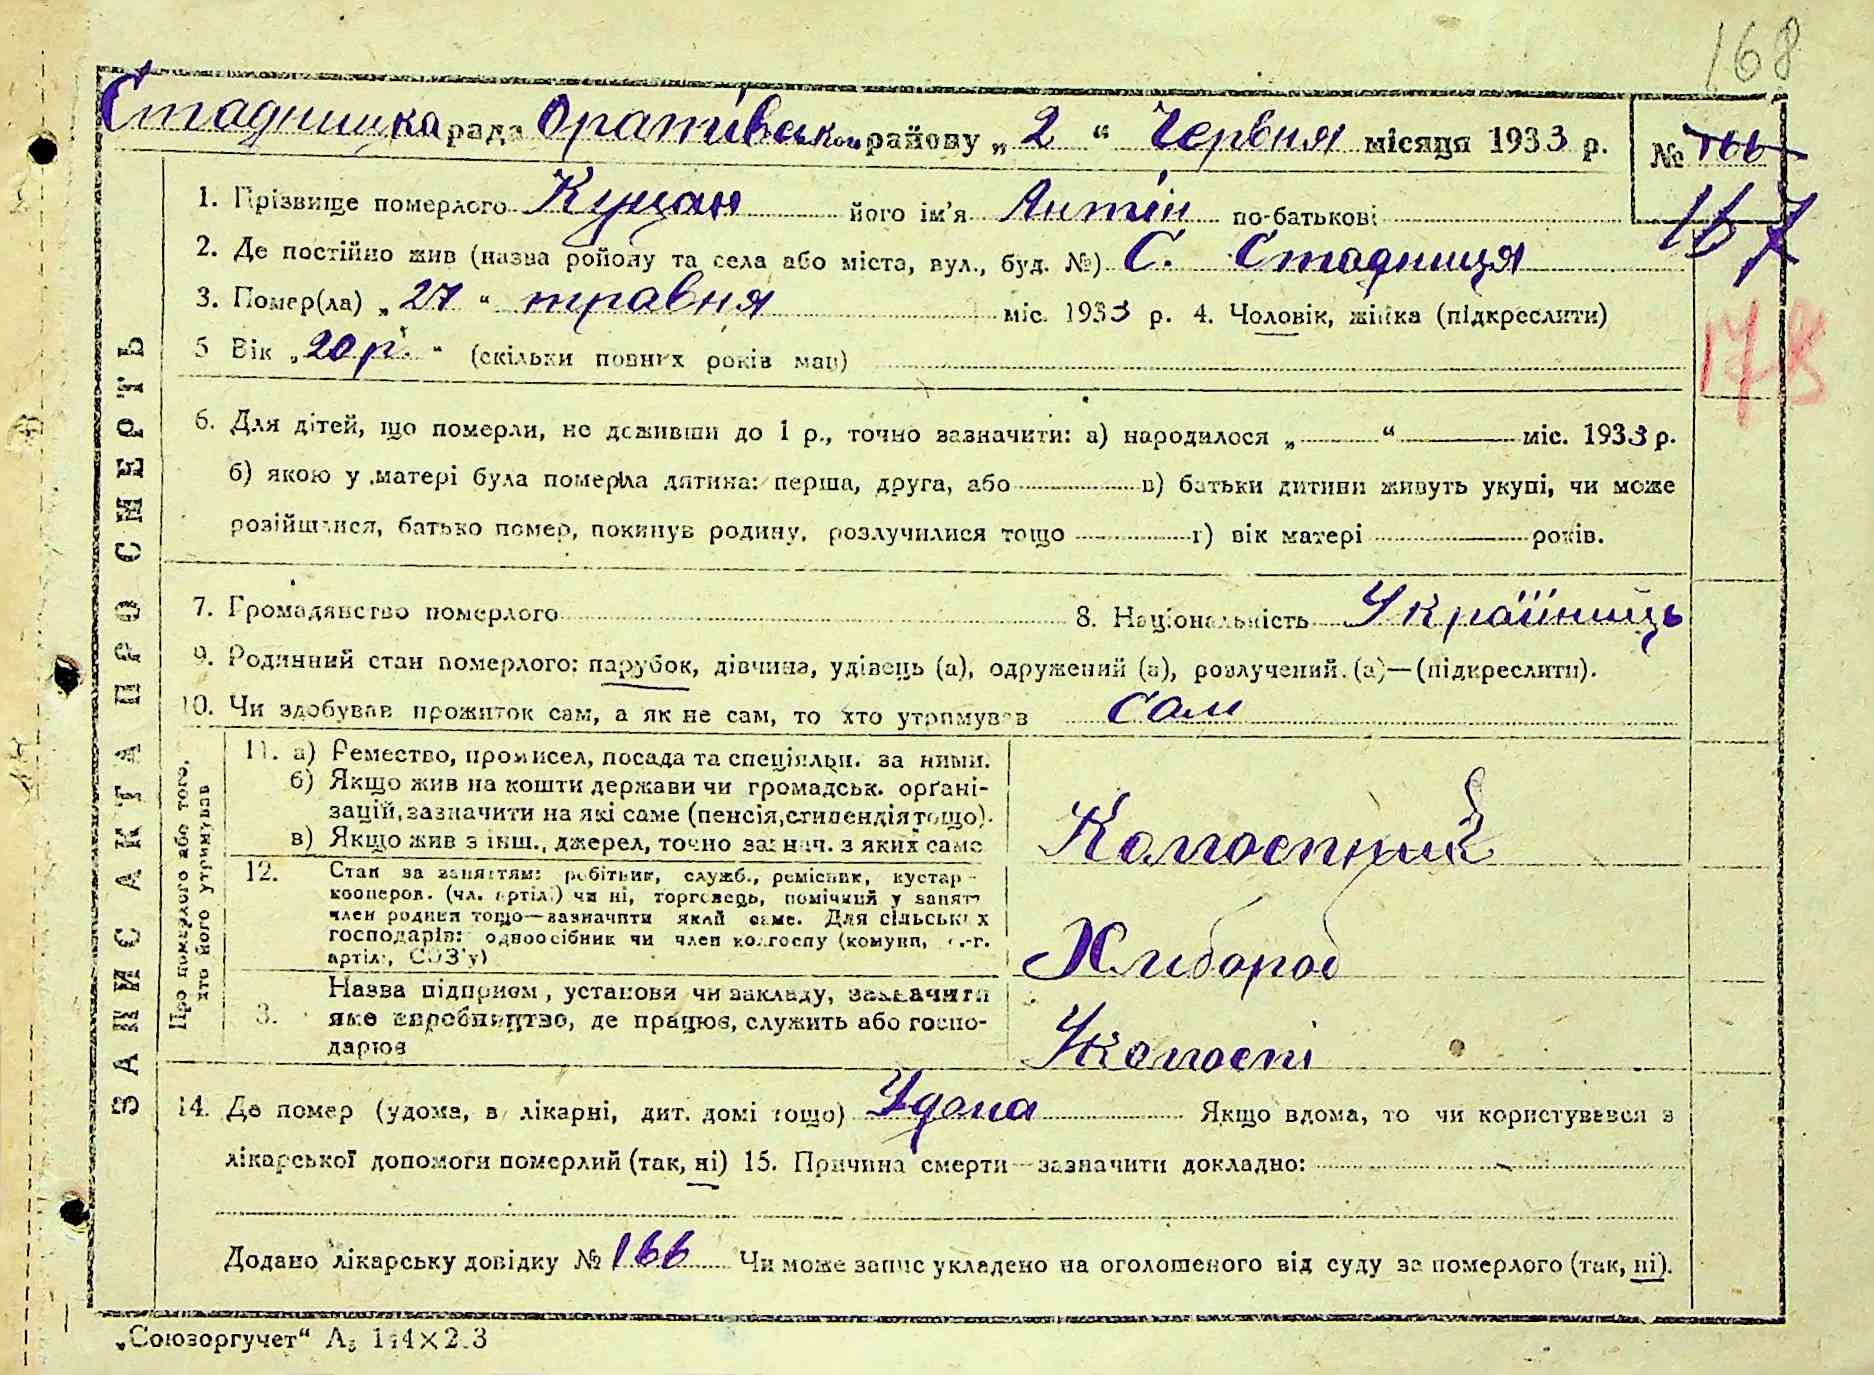 168
Стадницка рада Оратівской району „2“ Червня місяця 1933 р. № 166
167
1. Прізвище померлого Куцан його ім'я Антін по-батькові
2. Де постійно жив (назва ройону та села або міста, вул., буд. №) С. Стадниця
3. Помер(ла) „27“ травня міс. 1933 р. 4. Чоловік, жінка (підкреслити)
178
5 Вік „20 р.“ (скільки повних років мав)
6. Для дітей, що померли, не доживши до 1 р., точно зазначити: а) народилося „ “ міс. 1933 р.
б) якою у матері була померла дитина: перша, друга, або в) батьки дитини живуть укупі, чи може
розійшлися, батько помер, покинув родину, розлучилися тощо г) вік матері років.
7. Громадянство померлого 8. Національність Україниць
9. Родинний стан померлого: парубок, дівчина, удівець (а), одружений (а), розлучений (а)—(підкреслити).
10. Чи здобував прожиток сам, а як не сам, то хто утримував сам
ЗАПИС АКТА ПРО СМЕРТЬ
Про померлого або того, хто його утримував
11. а) Ремество, промисел, посада та спеціяльн. за ними.
б) Якщо жив на кошти держави чи громадськ. орґані-
зацій, зазначити на які саме (пенсія, стипендія тощо).
в) Якщо жив з інш., джерел, точно зазнач. з яких саме
Колгоспник
12. Стан за заняттям: робітник, служб., ремісник, кустар-
кооперов. (чл. артілі) чи ні, торговець, помічний у занятт
член родини тощо—зазначити який саме. Для сільських
господарів: одноосібник чи член колгоспу (комуни, с.-г.
артілі, СОЗ'у)
Хлибороб
3. Назва підприєм, установи чи закладу, зазначити
яке виробництво, де працює, служить або госпо-
дарює
Уколгоспі
14. Де помер (удома, в лікарні, дит. домі тощо) Удома Якщо вдома, то чи користувався з
лікарської допомоги померлий (так, ні) 15. Причина смерти—зазначити докладно:
Додано лікарську довідку № 166 Чи може запис укладено на оголошеного від суду за померлого (так, ні).
„Союзоргучет“ А5 1:4×2.3